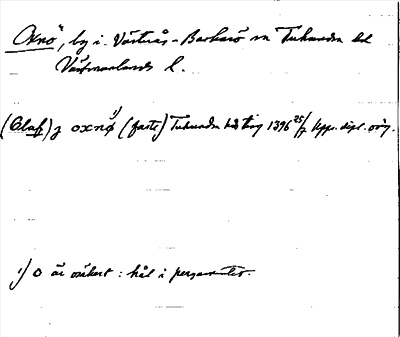 Oxnö, by i Västerås-Barkarö sn Tuhundra hd
Västmanlands l.
(Olaf) j oxnø 1) (faste) Tuhundra hds ting 1396 25/7 Upps. dipl. orig.
1) o är osäkert: hål i pergamentet.